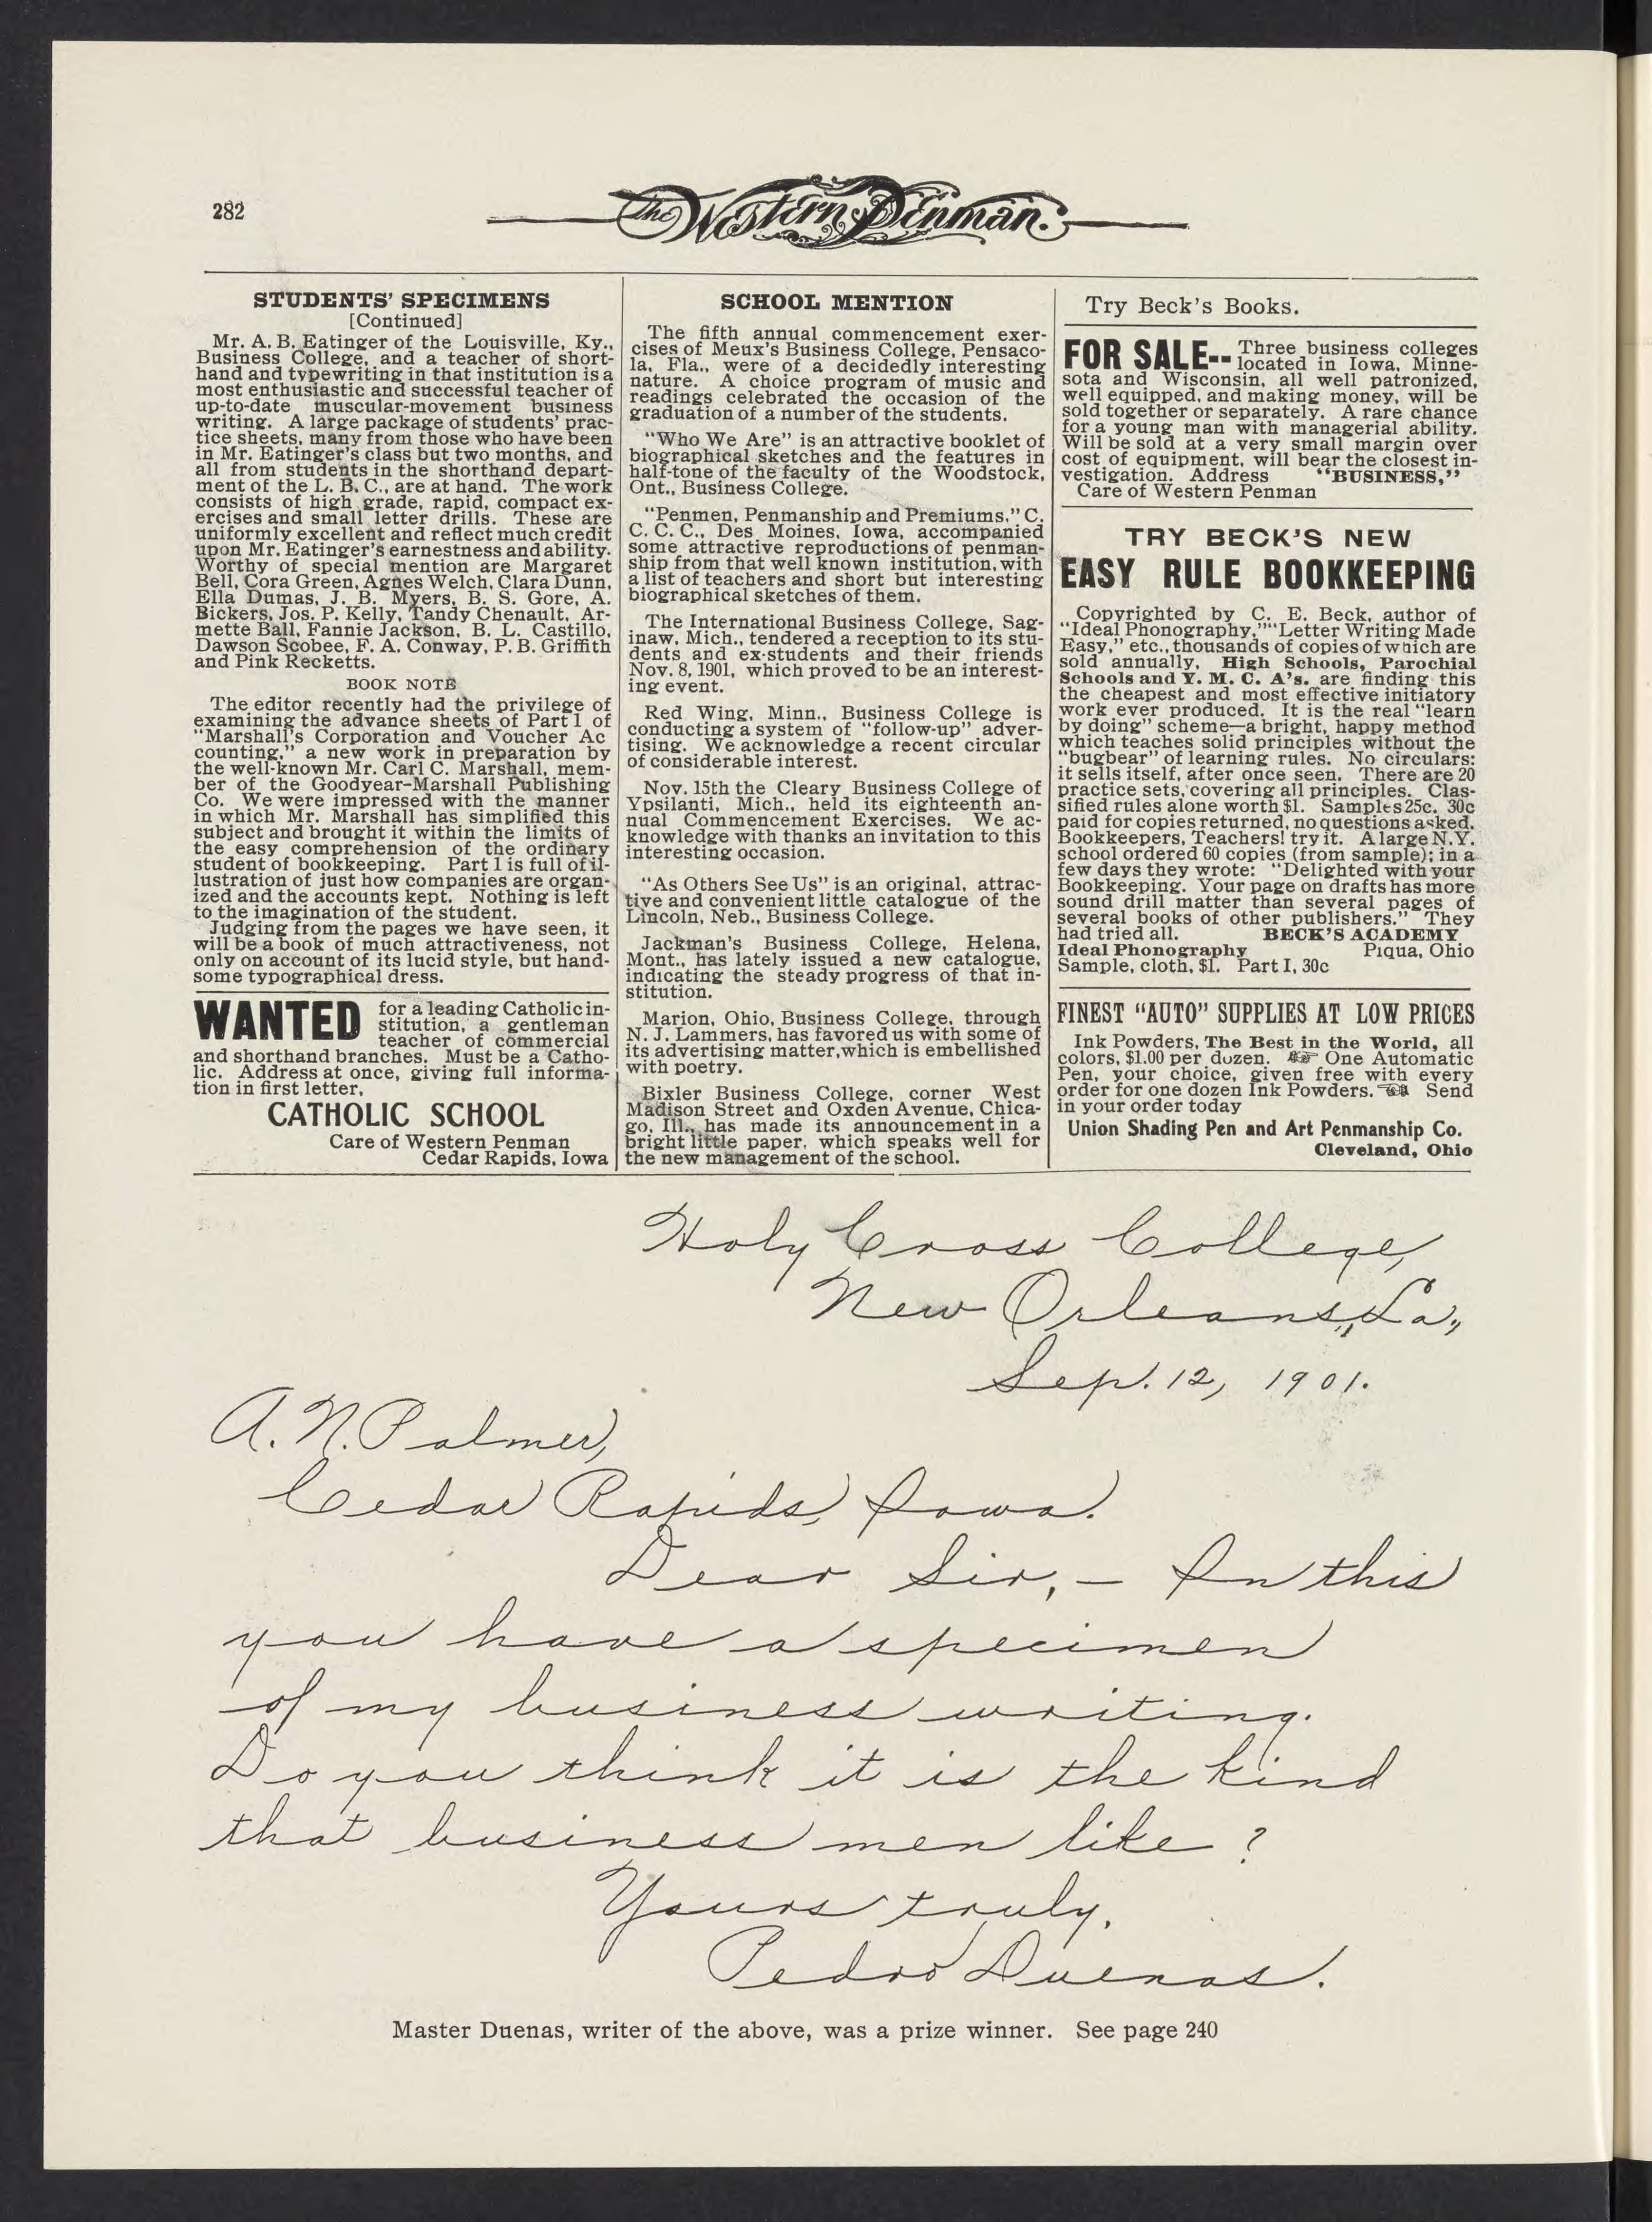 282
The Western Penman.
STUDENTS' SPECIMENS
[Continued]
Mr. A. B. Eatinger of the Louisville, Ky.,
Business College, and a teacher of short-
hand and typewriting in that institution is a
most enthusiastic and successful teacher of
up-to-date muscular-movement business
writing. A large package of students' prac-
tice sheets, many from those who have been
in Mr. Eatinger's class but two months, and
all from students in the shorthand depart-
ment of the L. B. C., are at hand. The work
consists of high grade, rapid, compact ex-
ercises and small letter drills. These are
uniformly excellent and reflect much credit
upon Mr. Eatinger's earnestness and ability.
Worthy of special mention are Margaret
Bell, Cora Green, Agnes Welch, Clara Dunn,
Ella Dumas, J. B. Myers, B. S. Gore, A.
Bickers, Jos. P. Kelly, Tandy Chenault, Ar-
mette Ball, Fannie Jackson, B. L. Castillo,
Dawson Scobee, F. A. Conway, P. B. Griffith
and Pink Recketts.
BOOK NOTE
The editor recently had the privilege of
examining the advance sheets of Part 1 of
"Marshall's Corporation and Voucher Ac
counting," a new work in preparation by
the well-known Mr. Carl C. Marshall, mem-
ber of the Goodyear-Marshall Publishing
Co. We were impressed with the manner
in which Mr. Marshall has simplified this
subject and brought it within the limits of
the easy comprehension of the ordinary
student of bookkeeping. Part 1 is full of il-
lustration of just how companies are organ-
ized and the accounts kept. Nothing is left
to the imagination of the student.
Judging from the pages we have seen, it
will be a book of much attractiveness, not
only on account of its lucid style, but hand-
some typographical dress.
WANTED for a leading Catholic in-
stitution, a gentleman
teacher of commercial
and shorthand branches. Must be a Catho-
lic. Address at once, giving full informa-
tion in first letter,
CATHOLIC SCHOOL
Care of Western Penman
Cedar Rapids, Iowa
SCHOOL MENTION
The fifth annual commencement exer-
cises of Meux's Business College, Pensaco-
la, Fla., were of a decidedly interesting
nature. A choice program of music and
readings celebrated the occasion of the
graduation of a number of the students.
"Who We Are" is an attractive booklet of
biographical sketches and the features in
half-tone of the faculty of the Woodstock,
Ont., Business College.
"Penmen, Penmanship and Premiums," C.
C. C. C., Des Moines, Iowa, accompanied
some attractive reproductions of penman-
ship from that well known institution, with
a list of teachers and short but interesting
biographical sketches of them.
The International Business College, Sag-
inaw, Mich., tendered a reception to its stu-
dents and ex-students and their friends
Nov. 8, 1901, which proved to be an interest-
ing event.
Red Wing, Minn., Business College is
conducting a system of "follow-up" adver-
tising. We acknowledge a recent circular
of considerable interest.
Nov. 15th the Cleary Business College of
Ypsilanti, Mich., held its eighteenth an-
nual Commencement Exercises. We ac-
knowledge with thanks an invitation to this
interesting occasion.
"As Others See Us" is an original, attrac-
tive and convenient little catalogue of the
Lincoln, Neb., Business College.
Jackman's Business College, Helena,
Mont., has lately issued a new catalogue,
indicating the steady progress of that in-
stitution.
Marion, Ohio, Business College, through
N. J. Lammers, has favored us with some of
its advertising matter, which is embellished
with poetry.
Bixler Business College, corner West
Madison Street and Oxden Avenue, Chica-
go, Ill., has made its announcement in a
bright little paper, which speaks well for
the new management of the school.
Try Beck's Books.
FOR SALE-- Three business colleges
located in Iowa, Minne-
sota and Wisconsin, all well patronized,
well equipped, and making money, will be
sold together or separately. A rare chance
for a young man with managerial ability.
Will be sold at a very small margin over
cost of equipment, will bear the closest in-
vestigation. Address "BUSINESS,"
Care of Western Penman
TRY BECK'S NEW
EASY RULE BOOKKEEPING
Copyrighted by C. E. Beck, author of
"Ideal Phonography," "Letter Writing Made
Easy," etc., thousands of copies of which are
sold annually, High Schools, Parochial
Schools and Y. M. C. A's. are finding this
the cheapest and most effective initiatory
work ever produced. It is the real "learn
by doing" scheme—a bright, happy method
which teaches solid principles without the
"bugbear" of learning rules. No circulars:
it sells itself, after once seen. There are 20
practice sets, covering all principles. Clas-
sified rules alone worth $1. Samples 25c. 30c
paid for copies returned, no questions asked.
Bookkeepers, Teachers! try it. A large N. Y.
school ordered 60 copies (from sample); in a
few days they wrote: "Delighted with your
Bookkeeping. Your page on drafts has more
sound drill matter than several pages of
several books of other publishers." They
had tried all. BECK'S ACADEMY
Ideal Phonography Piqua, Ohio
Sample, cloth, $1. Part I, 30c
FINEST "AUTO" SUPPLIES AT LOW PRICES
Ink Powders, The Best in the World, all
colors, $1.00 per dozen. ☞ One Automatic
Pen, your choice, given free with every
order for one dozen Ink Powders. ☜ Send
in your order today
Union Shading Pen and Art Penmanship Co.
Cleveland, Ohio
Holy Cross College,
New Orleans, La.,
Sep. 12, 1901.
A. N. Palmer,
Cedar Rapids, Iowa.
Dear Sir, — In this
you have a specimen
of my business writing.
Do you think it is the kind
that business men like?
Yours truly,
Pedro Duenas.
Master Duenas, writer of the above, was a prize winner. See page 240